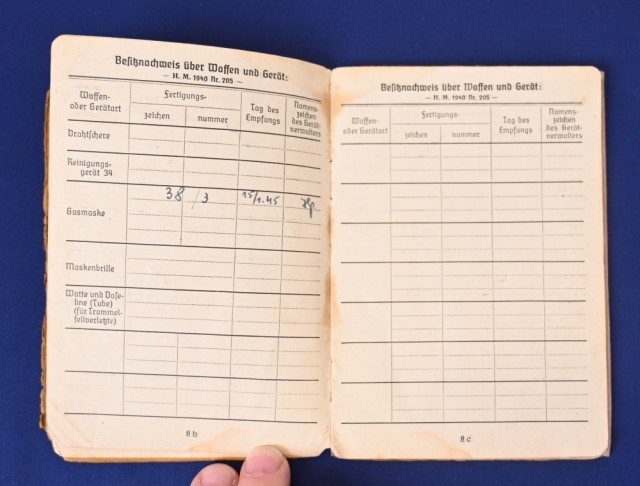 Besitznachweis über Waffen und Gerät:
— H. M. 1940 Nr. 205 —
Waffen-
oder Gerätart
Fertigungs-
zeichen
nummer
Tag des
Empfangs
Namens-
zeichen
des Gerät-
verwalters
Drahtschere
Reinigungs-
gerät 34
Gasmaske
38 / 3 15/1.45
Maskenbrille
Watte und Vase-
line (Tube)
(für Trommel-
fellverletzte)
8 b
Besitznachweis über Waffen und Gerät:
— H. M. 1940 Nr. 205 —
Waffen-
oder Gerätart
Fertigungs-
zeichen
nummer
Tag des
Empfangs
Namens-
zeichen
des Gerät-
verwalters
8 c